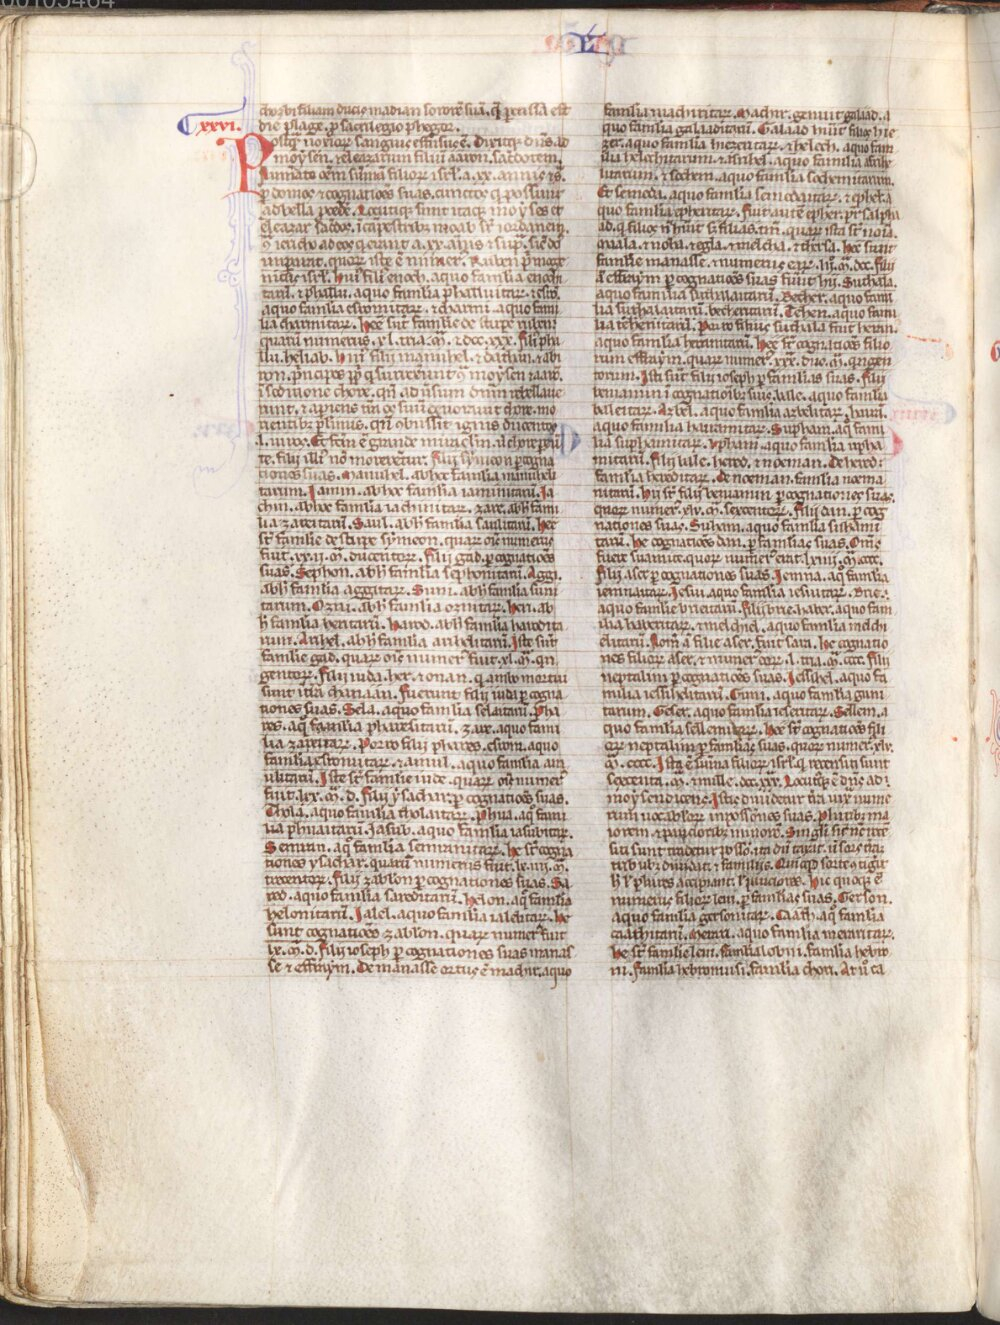 chozbi filiam ducis madian sororē suā. q̄ percussa est
die plage. p̄ sacrilegio phegor.
xxvi.
Postq̄ noxioꝝ sanguis effusus ē. Dixitq; dn̄s ad
moysen. ⁊ eleazarum filiū aaron. sacerdotem.
Numerate oēm sūmā filioꝝ isrl̄. a .xx. annis ⁊ sͣ.
ꝑ domos ⁊ cognatiōes suas. cunctos q̄ possunt
ad bella ꝓcede. Locutiq; sunt itaq; moyses et
eleazar sacdos. ī cāpestribꝫ moab sr̄ iordanem
ꝯ iericho ad eos q̄ erant a .xx. ānis ⁊ supͣ. sic̄ dn̄s
impauit. quoꝝ iste ē numer̄. Ruben p̄mogē
nitus isrl̄. Huiꝰ filiꝰ enoch. a quo familia enochi
tarū. ⁊ phallu. a quo familia phalluitaꝝ. ⁊ esrō.
a quo familia esromitaꝝ. ⁊ charmi. a quo fami
lia charmitaꝝ. Hee sūt familie de stirpe rubē.
quarū numerus. xl. tria. m̄. ⁊ dcc. xxx. filiꝰ pha
llu. heliab. Huiꝰ filii namuhel. ⁊ dathan. ⁊ abi
ron. p̄ncipes ppl̄i q̄ surrexerunt ꝯͣ moysen ⁊ aarō.
ī seditione chore. qn̄ aduˀsum dn̄m rebellaue
runt. ⁊ apiens tr̄a os suū deuorauit chore. mo
rientibꝫ plurimis. qn̄ ꝯbussit ignis ducentos
.l. uiros. Et fc̄m ē grande miraclm. ut chore peūn
te. filii illiꝰ nō morerētur. Filii symeon ꝑ cogna
tiones suas. Namuhel. ab hoc familia namuheli
tarum. Iamin. ab hoc familia iaminitarū. Ia
chin. ab hoc familia iachinitaꝝ. zare. ab h̄ fami
lia zareitarū. Saul. ab h̄ familia saulitarū. Hee
st̄ familie de stirpe symeon. quaꝝ oīs numerus
fuit. xx. ii. m̄. ducentoꝝ. Filii gad. ꝑ cognatiōes
suas. Sephon. ab h̄ familia sephonitarū. Aggi.
ab h̄ familia aggitaꝝ. Suni. ab h̄ familia suni
tarum. Ozni. ab h̄ familia oznitaꝝ. Heri. ab
h̄ familia heritarū. Harod. ab h̄ familia harodita
rum. Arihel. ab h̄ familia arihelitarū. Iste sūt
familie gad. quaꝝ oīs numer̄ fuit. xl. m̄. qn̄
gentoꝝ. Filii iuda. her. ⁊ onan. q̄ ambo mortui
sunt ī tr̄a chanaan. Fuerunt filii iuda ꝑ cogna
tiones suas. Sela. a quo familia selaitarū. Pha
res. a q̄ familia pharesitarū. zare. a quo fami
lia zareitaꝝ. Porro filii phares. esrom. a quo
familia esromitaꝝ. ⁊ amul. a quo familia am
ulitarū. Iste st̄ familie iude. quaꝝ oīs numer̄
fuit. lxx. m̄. d. Filii ysachar. ꝑ cognatiōes suas.
Thola. a quo familia tholaitaꝝ. Phua. a q̄ fami
lia phuaitarū. Iasub. a quo familia iasubitaꝝ.
Semran. a q̄ familia semranitaꝝ. Hee st̄ cogna
tiones ysachar. quarū numerus fuit. lx. iiii. m̄.
trecentoꝝ. Filii zablon ꝑ cognationes suas. Sa
red. a quo familia sareditarū. Helon. a q̄ familia
helonitarū. Ialel. a quo familia ialelitaꝝ. Hee
sunt cognatiōes zablon. quaꝝ numer̄ fuit
lx. m̄. d. Filii ioseph ꝑ cognationes suas manas
se ⁊ effraym. De manasse ortus ē machir. a quo
familia machiritaꝝ. Machir. genuit galaad. a
quo familia galaaditarū. Galaad hūit filios. hie
zer. a quo familia hiezeritaꝝ. ⁊ helech. a quo fam
ilia helechitarum. ⁊ asrihel. a quo familia asrihe
litarum. ⁊ sechem. a quo familia sechemitarum.
Et semida. a quo familia semidaitaꝝ. ⁊ epher. a
quo familia epheritaꝝ. Fuit autē epher. pr̄ salpha
ad. q̄ filios n̄ hūit sꝫ filias. tm̄. quaꝝ ista st̄ noīa.
maala. ⁊ noha. ⁊ egla. ⁊ melcha. ⁊ thersa. Hee sunt
familie manasse. ⁊ numerus eaꝝ. lii. m̄. dcc. Filii
ā effraym ꝑ cognatiōes suas fuer̄t hii. Suthala.
a quo familia suthalaitarū. Becher. a quo fami
lia becheritarū. Tehen. a quo fami
lia tehenitarū. Porro filius suthala fuit heran.
a quo familia heranitarū. Hee st̄ cognatiōes filio
rum effraym. quaꝝ numer̄ .xxx. duo. m̄. qn̄gen
torum. Isti sūt filii ioseph ꝑ familias suas. Filii
beniamin ī cognatiōibꝫ suis. bale. a quo familia
baleitaꝝ. Azbel. a quo familia azbelitaꝝ. hairā.
a quo familia hairamitaꝝ. Supham. a q̄ fami
lia suphamitaꝝ. Vpham. a quo familia upha
mitarū. Filii bale. hered. ⁊ noeman. De hered:
familia hereditaꝝ. De noeman. familia noema
nitarū. hii st̄ filii beniamin ꝑ cognationes suas.
quoꝝ numer̄. xlv. m̄. sexcentoꝝ. Filii dan. ꝑ cog
nationes suas. Suham. a quo familia suhami
tarū. He cognatiōes dan. ꝑ familias suas. Om̄s
fuere suamite. quoꝝ numer̄ erat. lxiiii. m̄. cccc.
Filii aser ꝑ cognationes suas. Iemna. a q̄ familia
iemnaitaꝝ. Iesui. a quo familia iesuitaꝝ. Brie:
a quo familie brieitarū. Filii brie. haber. a quo fam
ilia haberitaꝝ. ⁊ melchiel. a quo familia melchi
elitarū. Nom̄ ā filie aser. fuit sara. he cognatio
nes filioꝝ aser. ⁊ numer̄ eoꝝ. l. tria. m̄. cccc. Filii
neptalim ꝑ cognatiōes suas. Iessihel. a quo fa
milia iessihelitarū. Guni. a quo familia guni
tarum. Geser. a quo familia ieseritaꝝ. Sellem. a
quo familia sellemitaꝝ. Hee st̄ cognatiōes fili
oꝝ neptalim ꝑ familias suas. quoꝝ numer̄. xlv.
m̄. cccc. Ista ē sūma filioꝝ isrl̄. q̄ recensiti sunt
sexcenta. m̄. ⁊ mille. dcc. xxx. Locutusq; ē dn̄s ad
moysen dicens. Istis diuidetur tr̄a iuxͣ nume
rum uocabloꝝ ī possōnes suas. Pluribꝫ ma
iorem. ⁊ paucioribꝫ minorē. Singlis sic̄ nc̄ recē
siti sunt tradetur possō. ita dūtaxat. ut sors tr̄am
tribubꝫ diuidat ⁊ familiis. Quicq̄d sorte ꝯtigerit.
h̄ l̄ plures accipiant. l̄ pauciores. Hic quoq; ē
numerus filioꝝ leui. ꝑ familias suas. Gerson.
a quo familia gersonitaꝝ. Caath. a q̄ familia
caathitarū. Merari. a quo familia meraritaꝝ.
He st̄ familie leui. Familia lobni. familia hebro
ni. familia moysi. familia chori. At uˀo ca